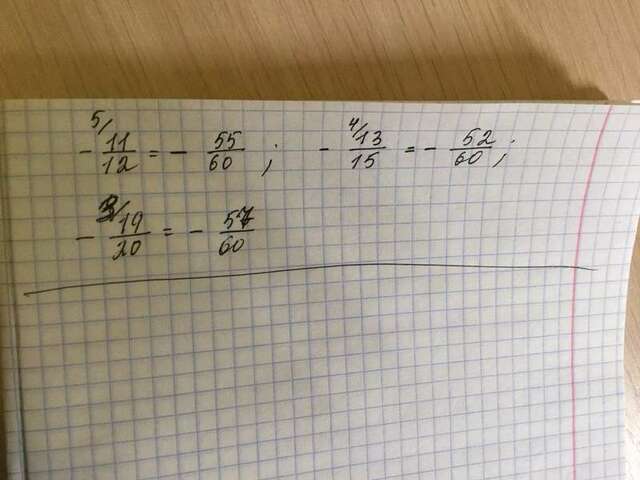 5/ - 11/12 = - 55/60 ; 4/ - 13/15 = - 52/60 ;
3/ - 19/20 = - 57/60